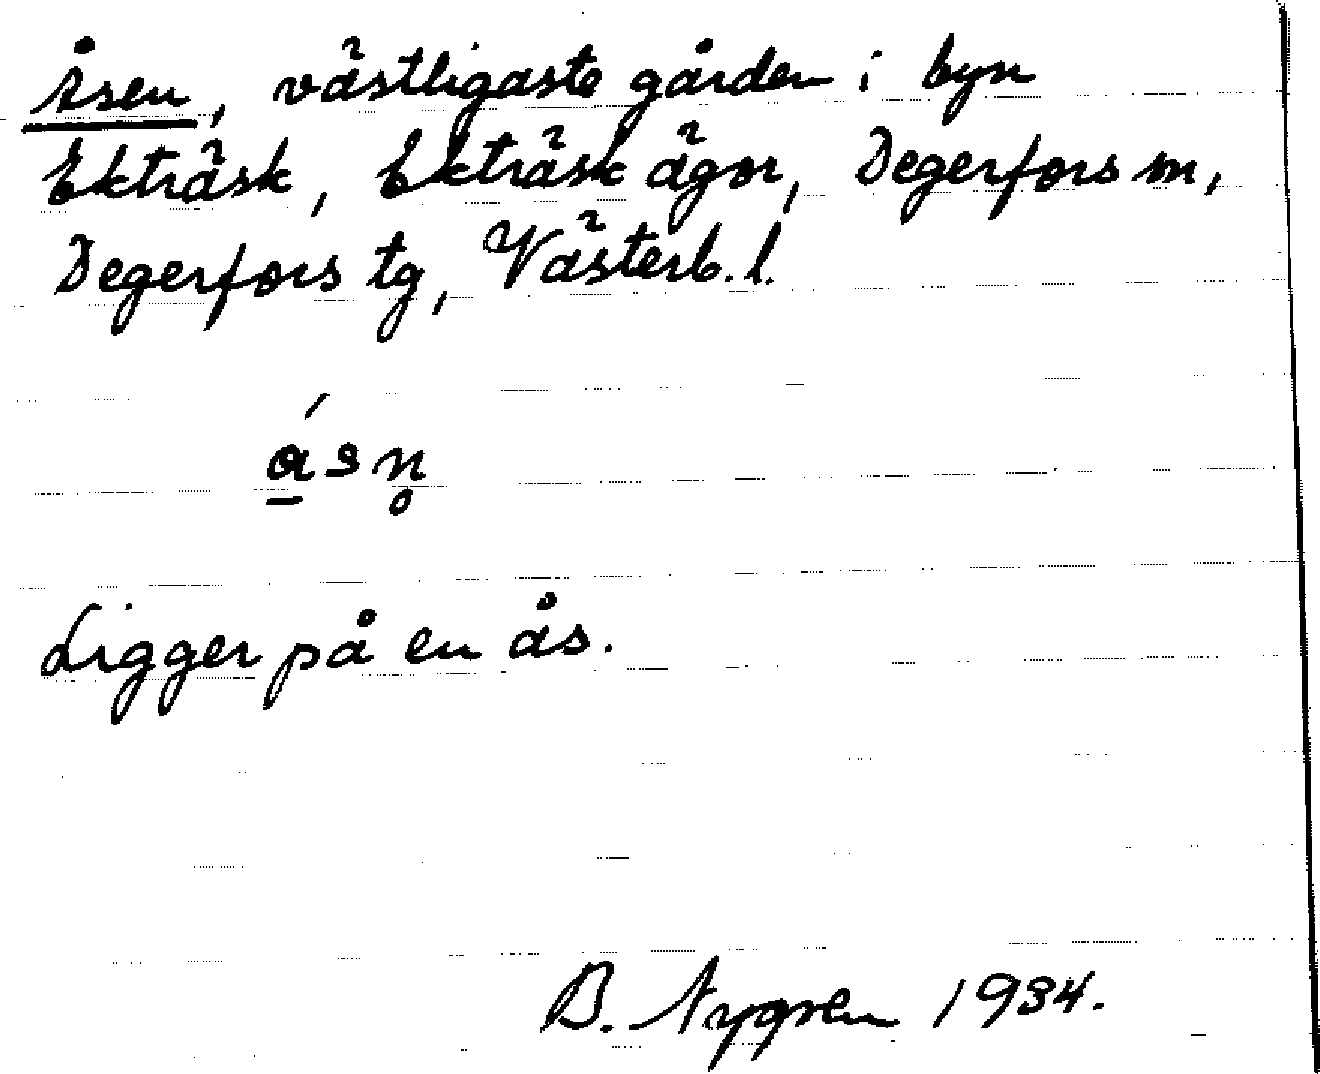 Åsen, västligaste gården i byn
Ekträsk, Ekträsk ägor, Degerfors sn,
Degerfors tg, Västerb. l.
á̱sn̥
Ligger på en ås.
B. Nygren 1934.